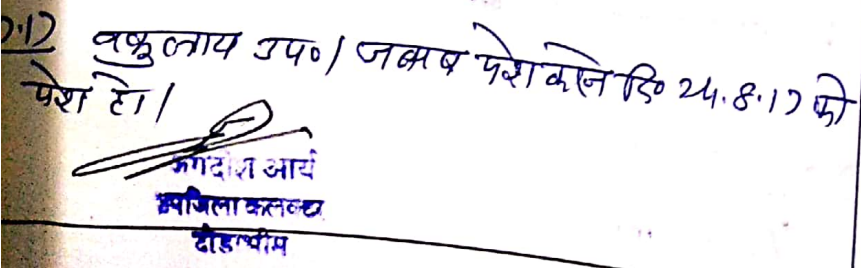 7.17 वकुलाय उप०। जबाब पेश करने दि० 24.8.17 को
पेश हो।
जगदीश आर्य
उपजिला कलक्टर
टोडाभीम